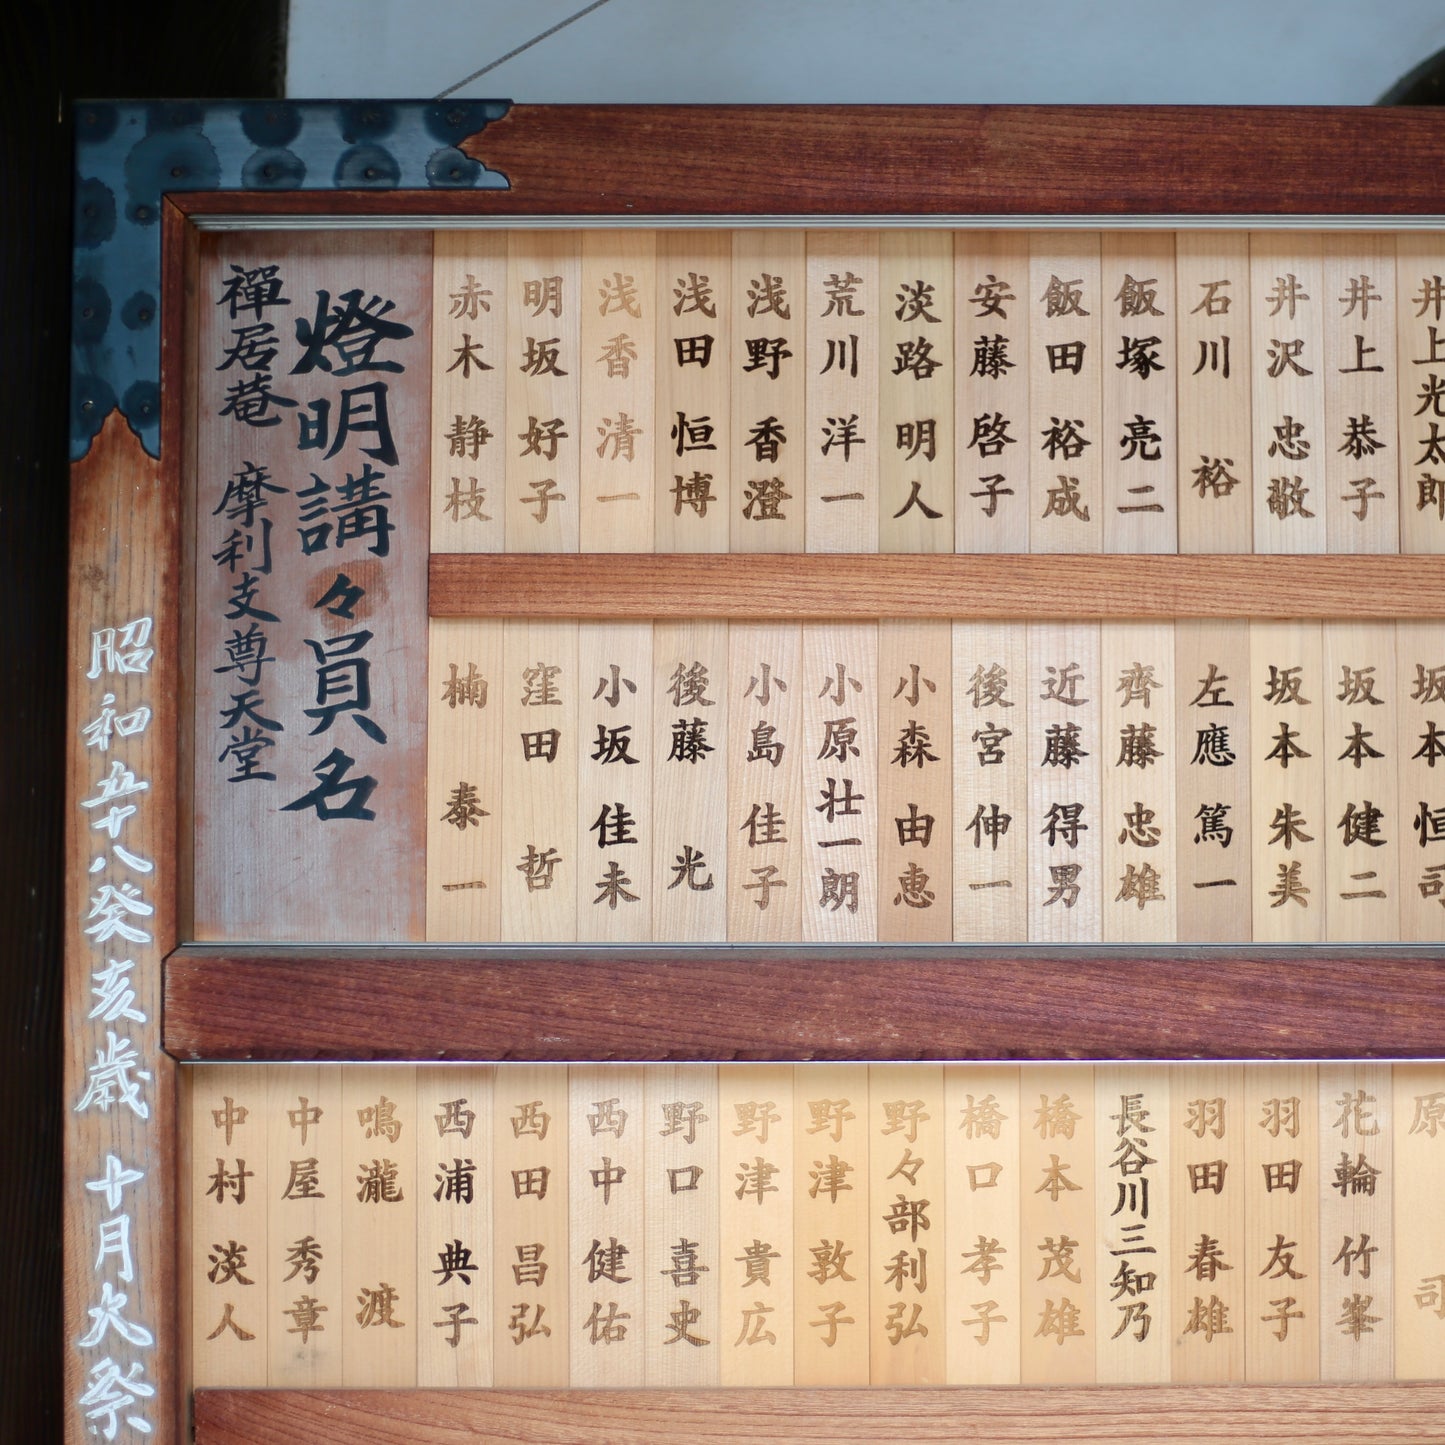 燈明講々員名
禪居菴 摩利支尊天堂
赤木 静枝
明坂 好子
浅香 清一
浅田 恒博
浅野 香澄
荒川 洋一
淡路 明人
安藤 啓子
飯田 裕成
飯塚 亮二
石川 裕
井沢 忠敬
井上 恭子
井上光太郎
楠 泰一
窪田 哲
小坂 佳未
後藤 光
小島 佳子
小原壮一朗
小森 由恵
後宮 伸一
近藤 得男
齊藤 忠雄
左應 篤一
坂本 朱美
坂本 健二
坂本 恒司
中村 淡人
中屋 秀章
鳴瀧 渡
西浦 典子
西田 昌弘
西中 健佑
野口 喜史
野津 貴広
野津 敦子
野々部利弘
橋口 孝子
橋本 茂雄
長谷川三知乃
羽田 春雄
羽田 友子
花輪 竹峯
原 司
昭和五十八癸亥歳 十月火祭